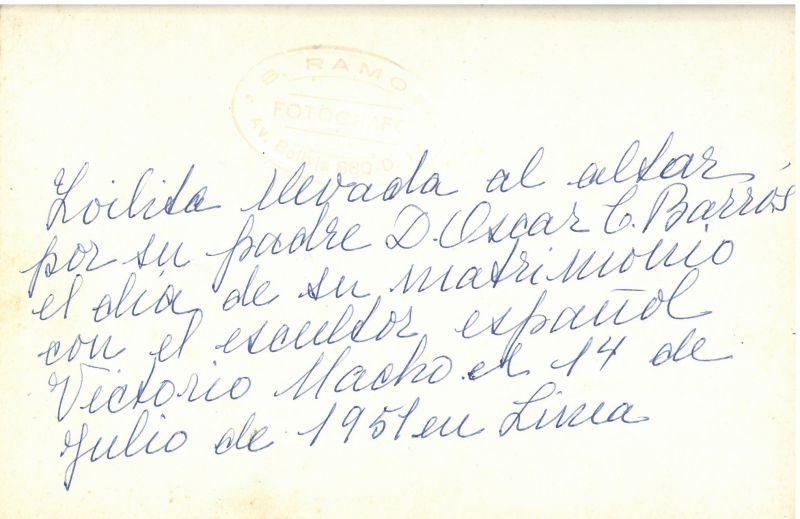 S. RAMO
FOTOGRAFO
Av. Bolivia 680. D.
Zoilita llevada al altar
por su padre D. Oscar C. Barrós
el día de su matrimonio
con el escultor español
Victorio Macho el 14 de
Julio de 1951 en Lima